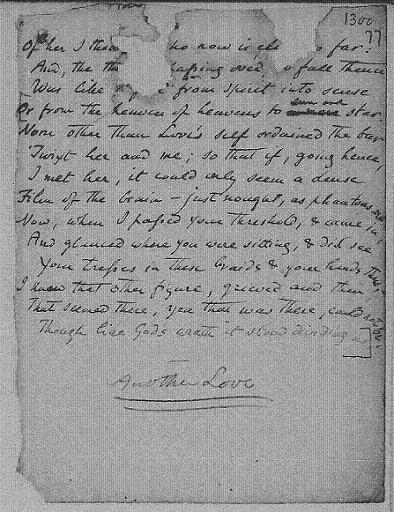 1300
77
Of her I tho who now is so far:
And, the th passing over, to fall thence
Was like from spirit into sense
Or from the heaven of heavens to sun and star.
None other than Love's self ordained the bar
'Twixt her and me; so that if, going hence,
I met her, it could only seem a dense
Film of the brain – just nought, as phantoms are.
Now, when I passed your threshold, & came in,
And glanced where you were sitting, & did see
Your tresses in these braids & your hands thus,–
I knew that other figure, grieved and thin,
That seemed there, yea that was there, could not be,
Though like God's wrath it stood dividing us.
Another Love